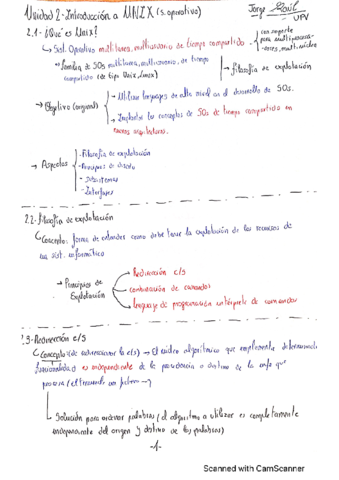 Unidad 2-Introducción a UNIX (s. operativo)
Jorge
UPV
2.1- ¿Qué es Unix?
con soporte
para multiproceso-
-adores, multinúcleo
↳ Sist. Operativo multitarea, multiusuario de tiempo compartido
↳ familia de SOs multitarea, multiusuario, de tiempo
compartido (de tipo Unix, Linux)
→ filosofía de explotación
→ Objetivo (original)
- Utilizar lenguajes de alto nivel en el desarrollo de SOs.
- Implantar los conceptos de SOs de tiempo compartido en
nuevas arquitecturas.
→ Aspectos
- Filosofía de explotación
- Principios de diseño
- Subsistemas
- Interfaces
2.2- filosofía de explotación
↳ Concepto: forma de entender como debe tener la explotación de los recursos de
un sist. informático
→ Principios de
Explotación
Redirección e/s
combinación de comandos
lenguaje de programación intérprete de comandos
2.3- Redirección e/s
↳ Concepto (de redireccionar la e/s) → El núcleo algorítmico que implementa determinada
funcionalidad es independiente de la procedencia o destino de la info que
procesa
↳ Solución para ordenar palabras (el algoritmo a utilizar es completamente
independiente del origen y destino de las palabras)
-1-
Scanned with CamScanner